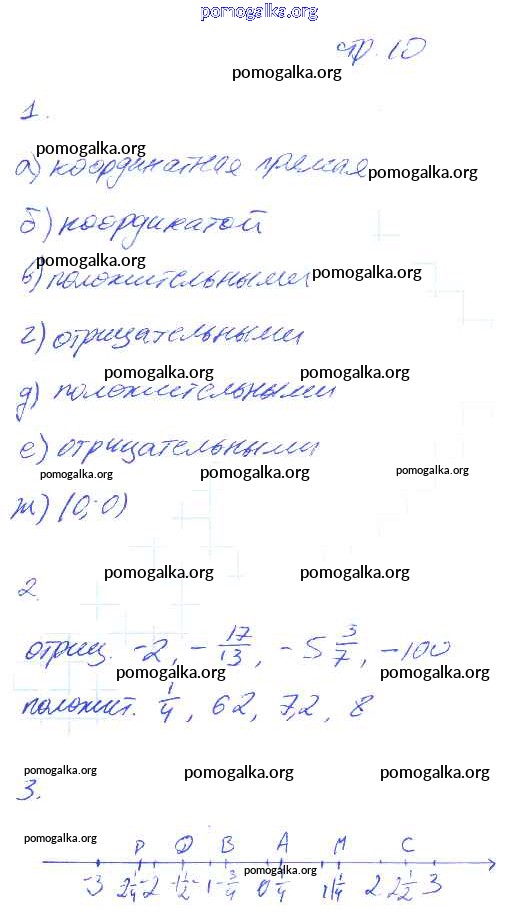 pomogalka.org
стр. 10
pomogalka.org
1.
pomogalka.org
а) координатная прямая
pomogalka.org
б) координатой
pomogalka.org
в) положительными
pomogalka.org
г) отрицательными
pomogalka.org pomogalka.org
д) положительными
е) отрицательными
pomogalka.org pomogalka.org pomogalka.org
ж) (0; 0)
pomogalka.org pomogalka.org
2.
отриц. -2, -17/13, -5 3/7, -100
pomogalka.org pomogalka.org
положит. 1/4, 62, 7,2, 8
pomogalka.org pomogalka.org pomogalka.org
3.
pomogalka.org
P Q B A M C
pomogalka.org
-3 2 1/4 -2 -1 1/2 -1 -3/4 0 1/4 1 1 1/4 2 2 1/2 3